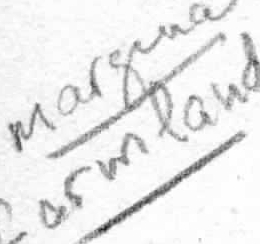 margina
farmland